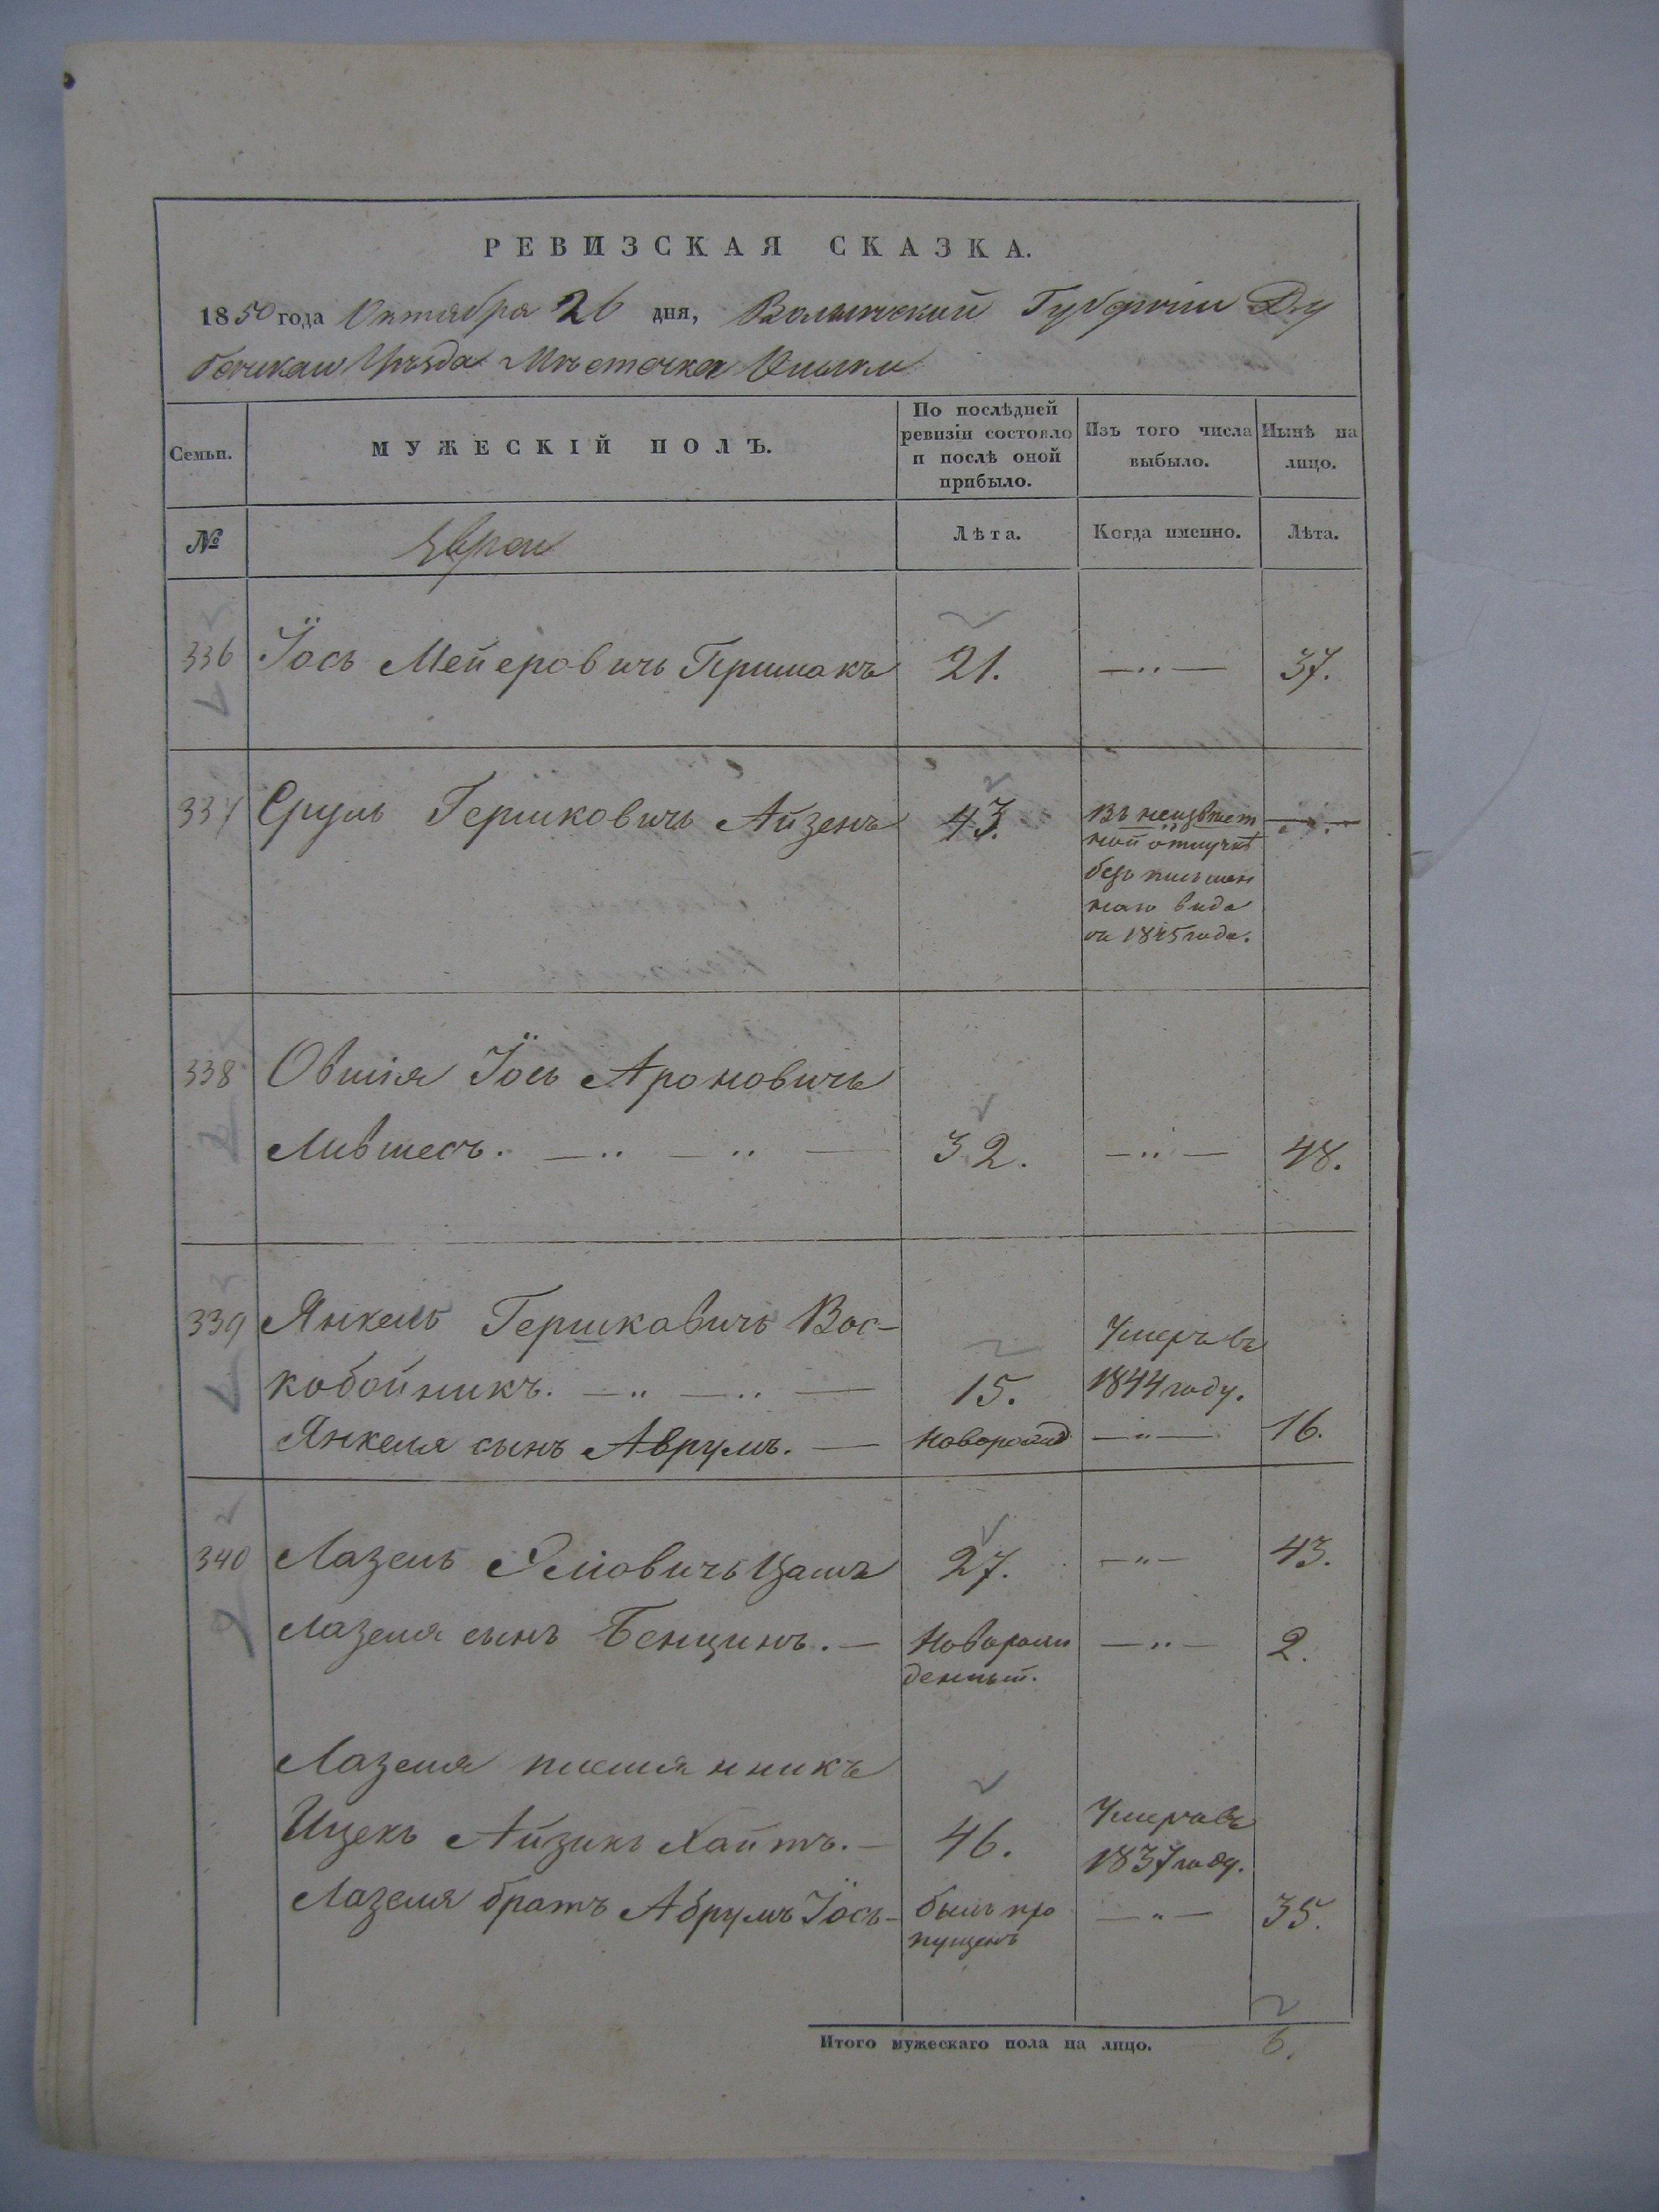 РЕВИЗСКАЯ СКАЗКА.
1850 года Октября 26 дня, Волынской Губерніи Ду
бенскаго Уѣзда Мѣстечка
Семьи. МУЖЕСКІЙ ПОЛЪ. По послѣдней ревизіи состояло и послѣ оной прибыло. Изъ того числа выбыло. Нынѣ на лицо.
№ Евреи Лѣта. Когда именно. Лѣта.
336 Іось Мейеровичъ 21. —„— 37.
337 Сруль Гершковичъ Айзенъ 43. Въ неизвѣст
ной отлучкѣ
безъ письмен
наго вида
съ 1845 года. —„—
338 Овшія Іось Ароновичъ
Лившесъ. —„—„— 32. —„— 48.
339 Янкель Гершковичъ Вос-
кобойникъ. —„—„— 15. Умеръ въ
1844 году.
Янкеля сынъ Аврумъ. — Новорожд —„— 16.
340 Лазель 27. —„— 43.
Лазеля сынъ Бенцинъ. — Новорож
денный. —„— 2.
Лазеля племянникъ
Ицекъ Айзикъ Хайтъ. — 46. Умеръ въ
1837 году.
Лазеля братъ Абрумъ Іось- былъ про
пущенъ —„— 35.
Итого мужескаго пола на лицо. 6.